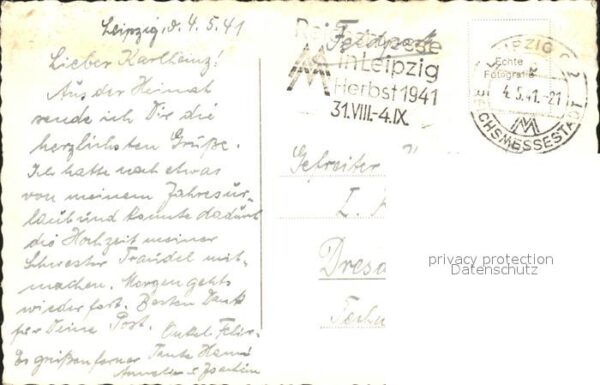 Leipzig, d. 4.5.41
Lieber Karlheinz!
Aus der Heimat
sende ich Dir die
herzlichsten Grüße.
Ich hatte noch etwas
von meinem Jahresur-
laub und konnte dadurch
die Hochzeit meiner
Schwester Traudel mit-
machen. Morgen gehts
wieder fort. Besten Dank
für Deine Post. Onkel Felix.
Es grüßen ferner Tante Hanni
Feldpost
Reichsmesse
in Leipzig
Herbst 1941
31.VIII.-4.IX.
Echte
Fotografie
LEIPZIG C2
4.5.41.-21
REICHSMESSESTADT
Gefreiter
Dresd
privacy protection
Datenschutz